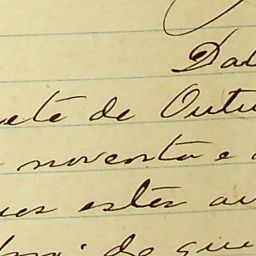 Dat
ete de Outu
noventa e
ues estes au
de que